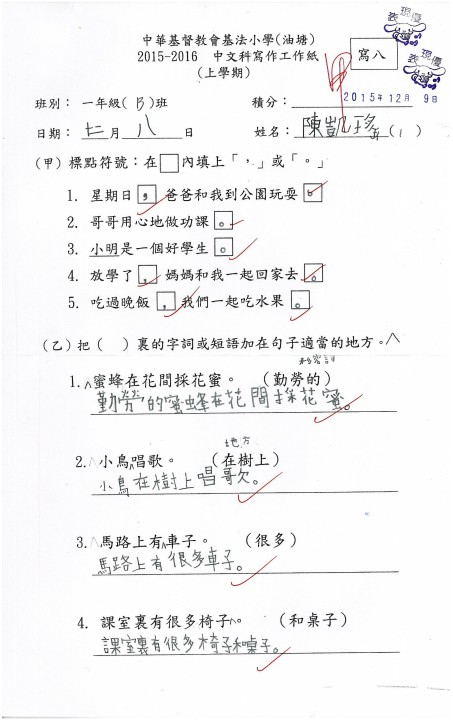 中華基督教會基法小學(油塘)
2015-2016 中文科寫作工作紙 寫八
(上學期)
表現優
表現優
甲
班別：一年級(B)班 積分：
2015年12月 9日
日期：十二月八日 姓名：陳凱 (1)
(甲)標點符號：在□內填上「，」或「。」
1. 星期日，爸爸和我到公園玩耍。
2. 哥哥用心地做功課。
3. 小明是一個好學生。
4. 放學了，媽媽和我一起回家去。
5. 吃過晚飯，我們一起吃水果。
(乙)把( )裏的字詞或短語加在句子適當的地方。^
形容詞
1.^蜜蜂在花間採花蜜。 (勤勞的)
勤勞的蜜蜂在花間採花蜜。
地方
2.^小鳥^唱歌。 (在樹上)
小鳥在樹上唱歌。
3.^馬路上有^車子。 (很多)
馬路上有很多車子。
4. 課室裏有很多椅子^。 (和桌子)
課室裏有很多椅子和桌子。